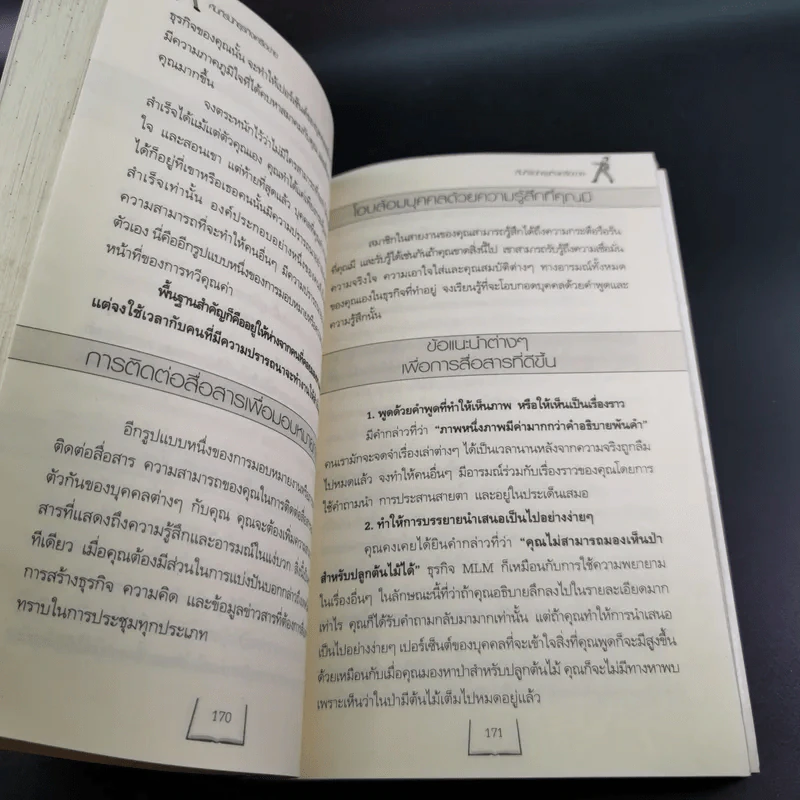 ธุรกิจของคุณนั้น จะทำให้เปอร์เซ็นต์
มีความภาคภูมิใจที่ได้คบหาสมาคมกับ
คุณมากขึ้น
จงตระหนักไว้ว่าไม่มีใครสามารถ
สำเร็จได้แม้แต่ตัวคุณเอง คุณทำได้แค่
ใจ และสอนเขา แต่ท้ายที่สุดแล้ว บุคคล
ได้ก็อยู่ที่เขาหรือเธอคนนั้นมีความปรารถนา
สำเร็จเท่านั้น องค์ประกอบอย่างหนึ่งของ
ความสามารถที่จะทำให้คนอื่นๆ มีความ
ตัวเอง นี่คืออีกรูปแบบหนึ่งของการมอบหมาย
หน้าที่ของการทวีคูณค่า
พื้นฐานสำคัญก็คืออยู่ให้ห่างจากคนที่
แต่จงใช้เวลากับคนที่มีความปรารถนาจะทำงาน
การติดต่อสื่อสารเพื่อมอบหมาย
อีกรูปแบบหนึ่งของการมอบหมายงาน
ติดต่อสื่อสาร ความสามารถของคุณในการติดต่อ
ตัวกันของบุคคลต่างๆ กับคุณ คุณจะต้องเพิ่ม
สารที่แสดงถึงความรู้สึกและอารมณ์ในแง่บวก
ทีเดียว เมื่อคุณต้องมีส่วนในการแบ่งปันบอกกล่าว
การสร้างธุรกิจ ความคิด และข้อมูลข่าวสารที่ต้อง
ทราบในการประชุมทุกประเภท
170
โอบล้อมบุคคลด้วยความรู้สึกที่คุณมี
สมาชิกในสายงานของคุณสามารถรู้สึกได้ถึงความกระตือรือร้น
ที่คุณมี และรับรู้ได้เช่นกันถ้าคุณขาดสิ่งนี้ไป เขาสามารถรับรู้ถึงความเชื่อมั่น
ความจริงใจ ความเอาใจใส่และคุณสมบัติต่างๆ ทางอารมณ์ทั้งหมด
ของคุณเองในธุรกิจที่ทำอยู่ จงเรียนรู้ที่จะโอบกอดบุคคลด้วยคำพูดและ
ความรู้สึกนั้น
ข้อแนะนำต่างๆ
เพื่อการสื่อสารที่ดีขึ้น
1. พูดด้วยคำพูดที่ทำให้เห็นภาพ หรือให้เห็นเป็นเรื่องราว
มีคำกล่าวที่ว่า “ภาพหนึ่งภาพมีค่ามากกว่าคำอธิบายพันคำ”
คนเรามักจะจดจำเรื่องเล่าต่างๆ ได้เป็นเวลานานหลังจากความจริงถูกลืม
ไปหมดแล้ว จงทำให้คนอื่นๆ มีอารมณ์ร่วมกับเรื่องราวของคุณโดยการ
ใช้คำถามนำ การประสานสายตา และอยู่ในประเด็นเสมอ
2. ทำให้การบรรยายนำเสนอเป็นไปอย่างง่ายๆ
คุณคงเคยได้ยินคำกล่าวที่ว่า “คุณไม่สามารถมองเห็นป่า
สำหรับปลูกต้นไม้ได้” ธุรกิจ MLM ก็เหมือนกับการใช้ความพยายาม
ในเรื่องอื่นๆ ในลักษณะนี้ที่ว่าถ้าคุณอธิบายลึกลงไปในรายละเอียดมาก
เท่าไร คุณก็ได้รับคำถามกลับมามากเท่านั้น แต่ถ้าคุณทำให้การนำเสนอ
เป็นไปอย่างง่ายๆ เปอร์เซ็นต์ของบุคคลที่จะเข้าใจสิ่งที่คุณพูดก็จะมีสูงขึ้น
ด้วยเหมือนกับเมื่อคุณมองหาป่าสำหรับปลูกต้นไม้ คุณก็จะไม่มีทางหาพบ
เพราะเห็นว่าในป่ามีต้นไม้เต็มไปหมดอยู่แล้ว
171